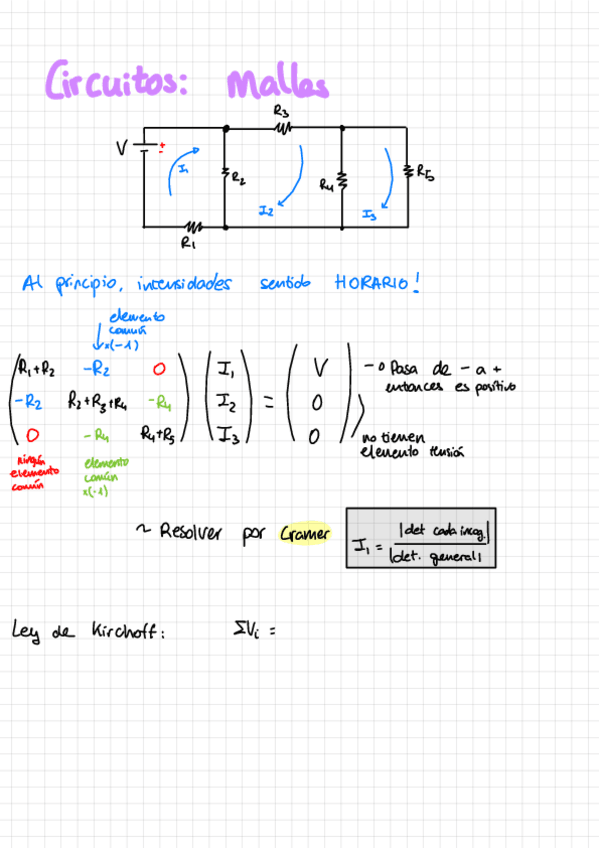 Circuitos: Mallas
R3
V + -
I1
R2
I2
R4
I3
R5
R1
Al principio, intensidades sentido HORARIO!
elemento
común
x(-1)
R1+R2 -R2 0 I1 V
-R2 R2+R3+R4 -R4 I2 = 0
0 -R4 R4+R5 I3 0
Pasa de - a +
entonces es positivo
no tienen
elemento tensión
ningún
elemento
común
elemento
común
x(-1)
~ Resolver por Cramer
I1 = |det cada incog.| / |det. general|
Ley de Kirchoff: ΣVi =